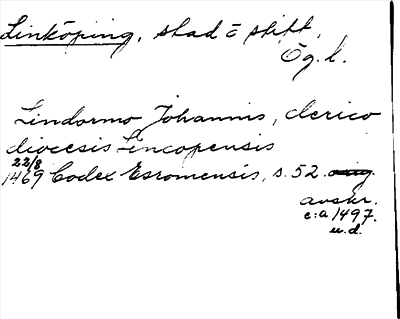 Linköping, stad o stift,
Ög. l.
Lindormo Johannis, clerico
diocesis Lincopensis
22/8
1469 Codex Esromensis, s. 52. orig.
avskr.
c:a 1497.
u.d.